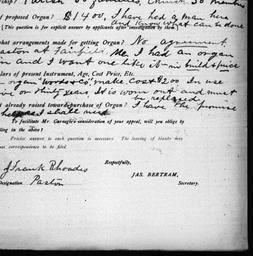 of proposed Organ? $1400. I have had a man here
and I know what can be done
[This question is for explicit answer by applicants after investigation by them]
What arrangements made for getting Organ? No agreement
at Fairfield. He had an organ
and I want one like it in build & price
Particulars of present Instrument, Age, Cost Price, Etc.
make. Cost $200. In use
or thirty years. It is worn out and must
be replaced
already raised toward purchase of Organ? I have the promise
I shall need
To facilitate Mr. Carnegie's consideration of your appeal, will you oblige by
in the above?
Precise answer to each question is necessary. The leaving of blanks may
correspondence to be filed
Respectfully,
J. Frank Rhodes
JAS. BERTRAM,
Designation Pastor
Secretary.